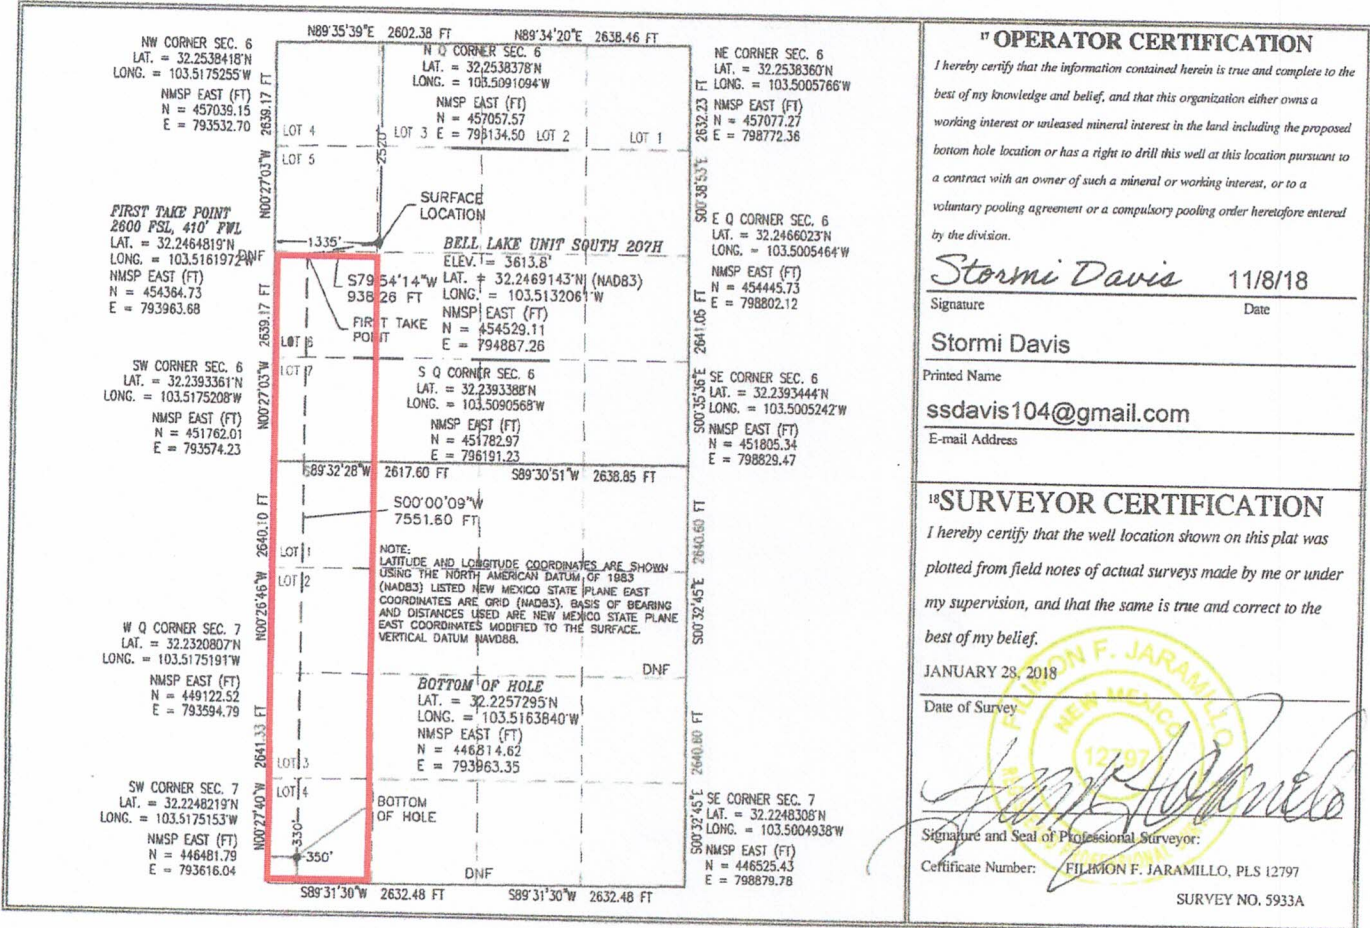 N89°35'39"E 2602.38 FT N89°34'20"E 2638.46 FT
NW CORNER SEC. 6
LAT. = 32.2538418'N
LONG. = 103.5175255'W
NMSP EAST (FT)
N = 457039.15
E = 793532.70
N Q CORNER SEC. 6
LAT. = 32.2538378'N
LONG. = 103.5091094'W
NMSP EAST (FT)
N = 457057.57
E = 796134.50
NE CORNER SEC. 6
LAT. = 32.2538360'N
LONG. = 103.5005766'W
NMSP EAST (FT)
N = 457077.27
E = 798772.36
2639.17 FT
N00°27'03"W
2632.23 FT
S00°38'53"E
LOT 4
LOT 3
LOT 2
LOT 1
LOT 5
2520'
SURFACE
LOCATION
1335'
FIRST TAKE POINT
2600 FSL, 410' FWL
LAT. = 32.2464819'N
LONG. = 103.5161972'W
NMSP EAST (FT)
N = 454364.73
E = 793963.68
DNF
S79°54'14"W
938.26 FT
FIRST TAKE
POINT
BELL LAKE UNIT SOUTH 207H
ELEV. = 3613.8'
LAT. = 32.2469143'N (NAD83)
LONG. = 103.5132061'W
NMSP EAST (FT)
N = 454529.11
E = 794887.26
E Q CORNER SEC. 6
LAT. = 32.2466023'N
LONG. = 103.5005464'W
NMSP EAST (FT)
N = 454445.73
E = 798802.12
2639.17 FT
N00°27'03"W
2641.05 FT
S00°35'36"E
LOT 6
LOT 7
SW CORNER SEC. 6
LAT. = 32.2393361'N
LONG. = 103.5175208'W
NMSP EAST (FT)
N = 451762.01
E = 793574.23
S Q CORNER SEC. 6
LAT. = 32.2393388'N
LONG. = 103.5090568'W
NMSP EAST (FT)
N = 451782.97
E = 796191.23
SE CORNER SEC. 6
LAT. = 32.2393444'N
LONG. = 103.5005242'W
NMSP EAST (FT)
N = 451805.34
E = 798829.47
S89°32'28"W 2617.60 FT S89°30'51"W 2638.85 FT
S00°00'09"W
7551.60 FT
2640.10 FT
N00°26'46"W
2640.60 FT
S00°32'45"E
LOT 1
LOT 2
NOTE:
LATITUDE AND LONGITUDE COORDINATES ARE SHOWN
USING THE NORTH AMERICAN DATUM OF 1983
(NAD83) LISTED NEW MEXICO STATE PLANE EAST
COORDINATES ARE GRID (NAD83). BASIS OF BEARING
AND DISTANCES USED ARE NEW MEXICO STATE PLANE
EAST COORDINATES MODIFIED TO THE SURFACE.
VERTICAL DATUM NAVD88.
W Q CORNER SEC. 7
LAT. = 32.2320807'N
LONG. = 103.5175191'W
NMSP EAST (FT)
N = 449122.52
E = 793594.79
DNF
BOTTOM OF HOLE
LAT. = 32.2257295'N
LONG. = 103.5163840'W
NMSP EAST (FT)
N = 446814.62
E = 793963.35
2641.33 FT
N00°27'40"W
2640.80 FT
S00°32'45"E
LOT 3
LOT 4
BOTTOM
OF HOLE
330'
350'
SW CORNER SEC. 7
LAT. = 32.2248219'N
LONG. = 103.5175153'W
NMSP EAST (FT)
N = 446481.79
E = 793616.04
SE CORNER SEC. 7
LAT. = 32.2248308'N
LONG. = 103.5004938'W
NMSP EAST (FT)
N = 446525.43
E = 798879.78
DNF
S89°31'30"W 2632.48 FT S89°31'30"W 2632.48 FT
17 OPERATOR CERTIFICATION
I hereby certify that the information contained herein is true and complete to the
best of my knowledge and belief, and that this organization either owns a
working interest or unleased mineral interest in the land including the proposed
bottom hole location or has a right to drill this well at this location pursuant to
a contract with an owner of such a mineral or working interest, or to a
voluntary pooling agreement or a compulsory pooling order heretofore entered
by the division.
Stormi Davis 11/8/18
Signature Date
Stormi Davis
Printed Name
ssdavis104@gmail.com
E-mail Address
18 SURVEYOR CERTIFICATION
I hereby certify that the well location shown on this plat was
plotted from field notes of actual surveys made by me or under
my supervision, and that the same is true and correct to the
best of my belief.
JANUARY 28, 2018
Date of Survey
FILIMON F. JARAMILLO
NEW MEXICO
12797
Signature and Seal of Professional Surveyor:
Certificate Number: FILIMON F. JARAMILLO, PLS 12797
SURVEY NO. 5933A